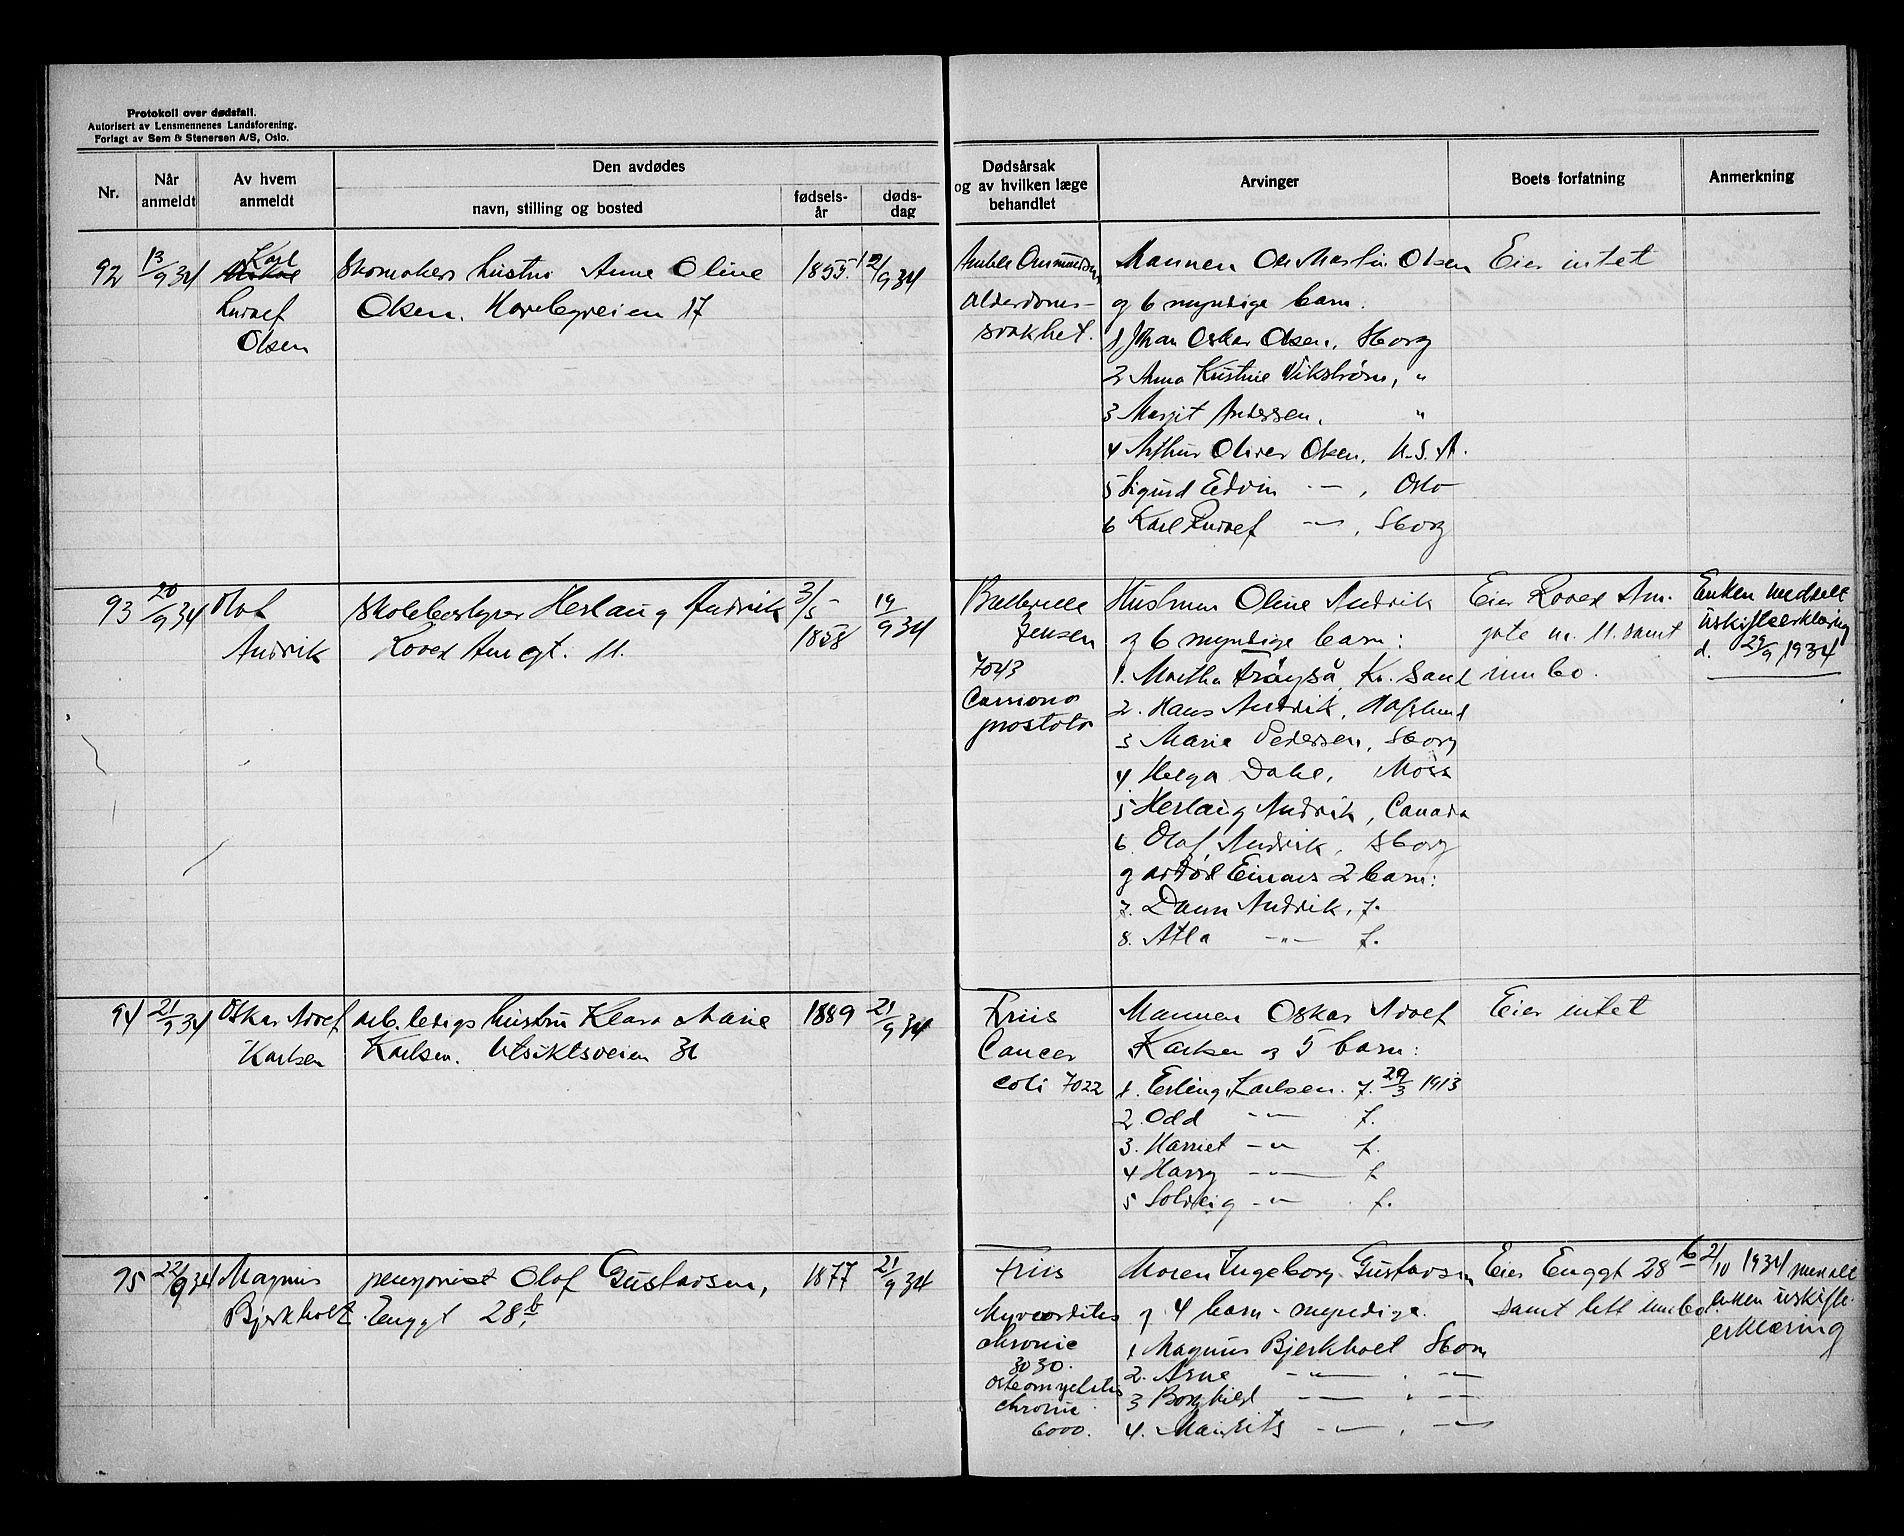 Protokoll over dødsfall.
Autorisert av Lensmennenes Landsforening.
Forlagt av Sem & Stenersen A/S, Oslo.
Nr.
Når anmeldt
Av hvem anmeldt
Den avdødes
navn, stilling og bosted
fødsels-år
døds-dag
Dødsårsak og av hvilken læge behandlet
Arvinger
Boets forfatning
Anmerkning
92 13/9 34 Karl
Ludvef
Olsen
Skomakers hustru Anne Oline
Olsen. Haralsveien 17
1855. 12/9 34
Alderdoms-
svakhet.
Mannen Ole Martin Olsen
og 6 myndige barn.
1 Johan Oskar Olsen, Sborg
2 Anna Kristine Vikstrøm, "
3 Margit Andersen, "
4 Arthur Oliver Olsen, U.S.A.
5 Sigurd Edvin -"- , Oslo
6 Karl Ludvef -"- , Sborg
Eier intet
93 20/9 34 Olaf
Andvik
Skolebestyrer Herlaug Andvik
Roald Am.gt. 11.
3/5
1858
19/9 34
Jensen
7043
prostata
Hustruen Oline Andvik
og 6 myndige barn:
1. Martha , Kr. Sand
2. Hans Andvik, Hafslund
3 Marie Pedersen, Sborg
4 Helga Dahl, Moss
5 Herlaug Andvik, Canada
6. Olaf Andvik, Sborg
og avdød Einars 2 barn:
7. Andvik, f.
8. Atla -"- f.
Eier Roald Am.
gate nr. 11. samt
innbo.
Enken meddelt
uskifteerklæring
d. 29/9 1934
94 21/9 34 Oskar Adolf
Karlsen
arb.ledigs hustru Klara Marie
Karlsen. Utsiktsveien 31
1889 21/9 34
Friis
Cancer
coli 7022
Mannen Oskar Adolf
Karlsen og 5 barn:
1. Erling Karlsen. f. 29/3 1913
2. Odd -"- f.
3. Harriet -"- f.
4 Harry -"- f
5 Solveig -"- f.
Eier intet
95 22/9 34 Magnus
Bjerkholt
pensjonist Olaf Gustavsen,
Enggt 28b.
1877 21/9 34
Friis
Myocarditis
chronic
3030.
Osteomyelitis
chronic
6000.
Moren Ingeborg Gustavsen
og 4 barn - myndige.
1 Magnus Bjerkholt Sborg
2. Arne -"- , -"-
3 Borghild -"- , -"-
4. Mauritz -"- , -"-
Eier Enggt 28b
samt litt innbo.
2/10 1934 meddelt
enken uskifte-
erklæring